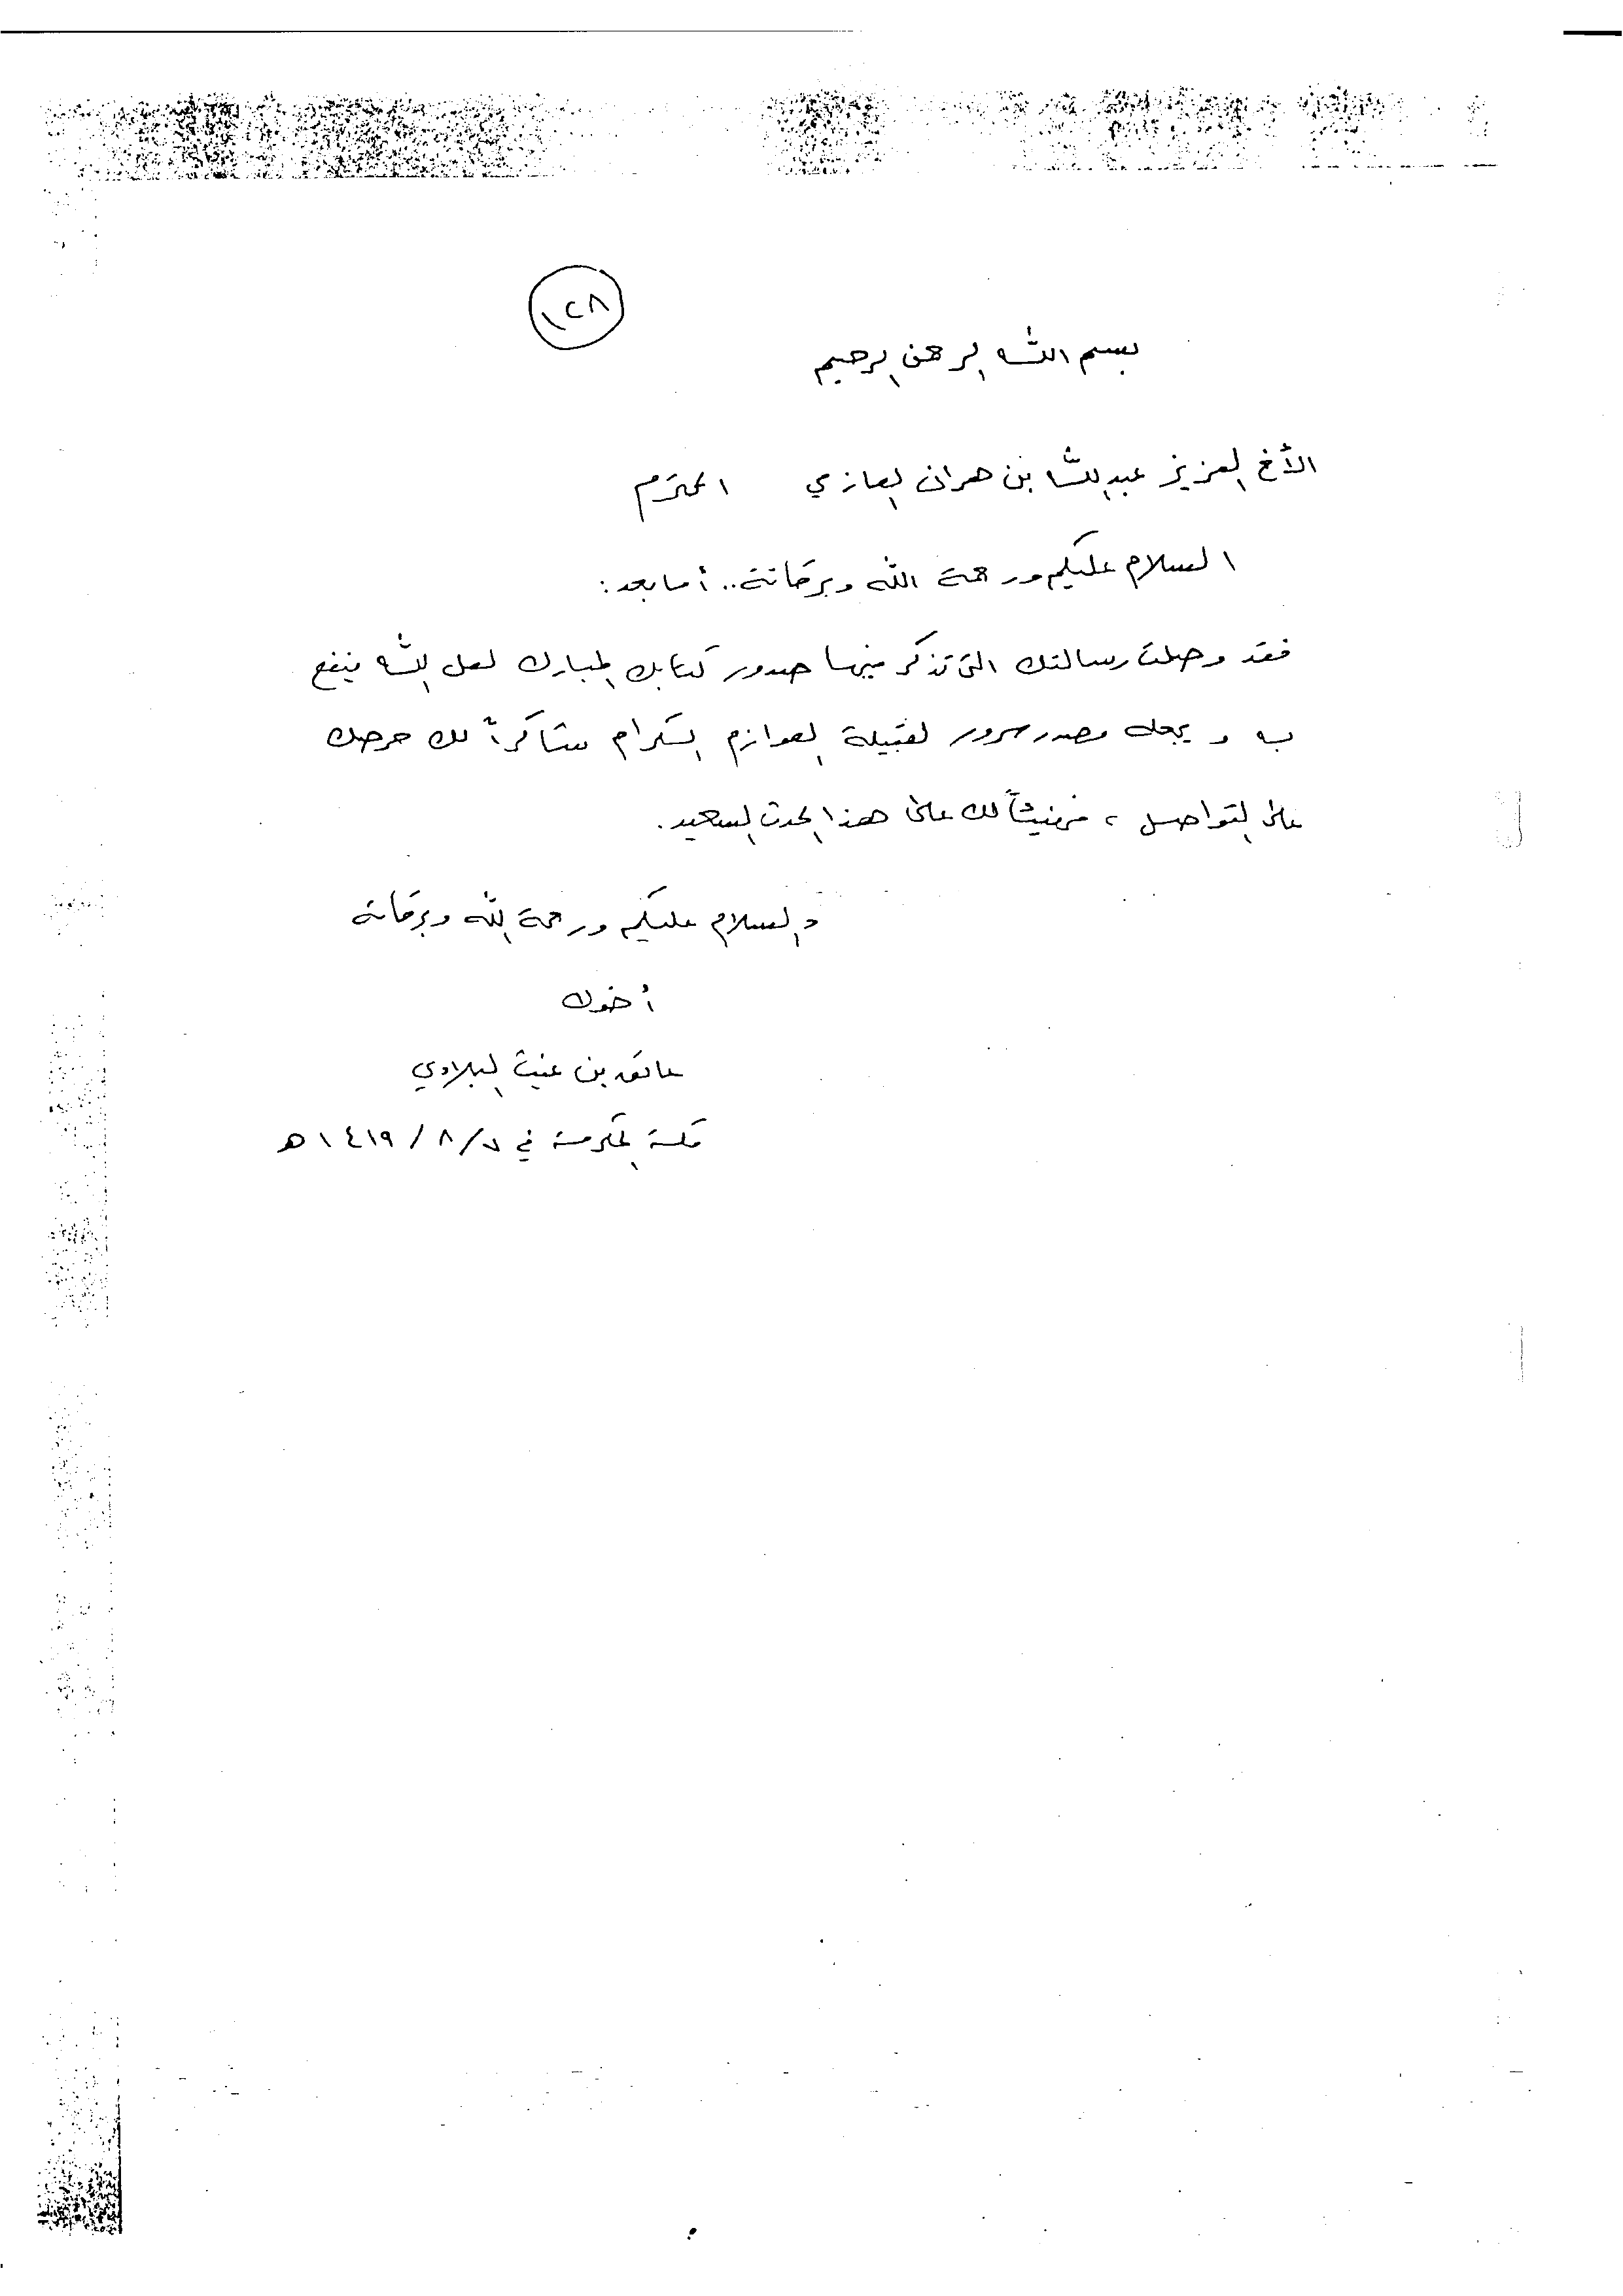 ١٢٨
بسم الله الرحمن الرحيم
الأخ العزيز عبدالله بن همران العازمي المحترم
السلام عليكم ورحمة الله وبركاته.. أما بعد:
فقد وصلت رسالتك التي تذكر فيها صدور كتابك المبارك لعل الله ينفع
به ويجعله مصدر سرور لقبيلة العوازم الكرام شاكراً لك حرصك
على التواصل ، فهنيئاً لك على هذا الحدث السعيد.
والسلام عليكم ورحمة الله وبركاته
أخوك
عاتق بن غيث البلادي
مكة المكرمة في ٧/ ٨ / ١٤١٩ هـ